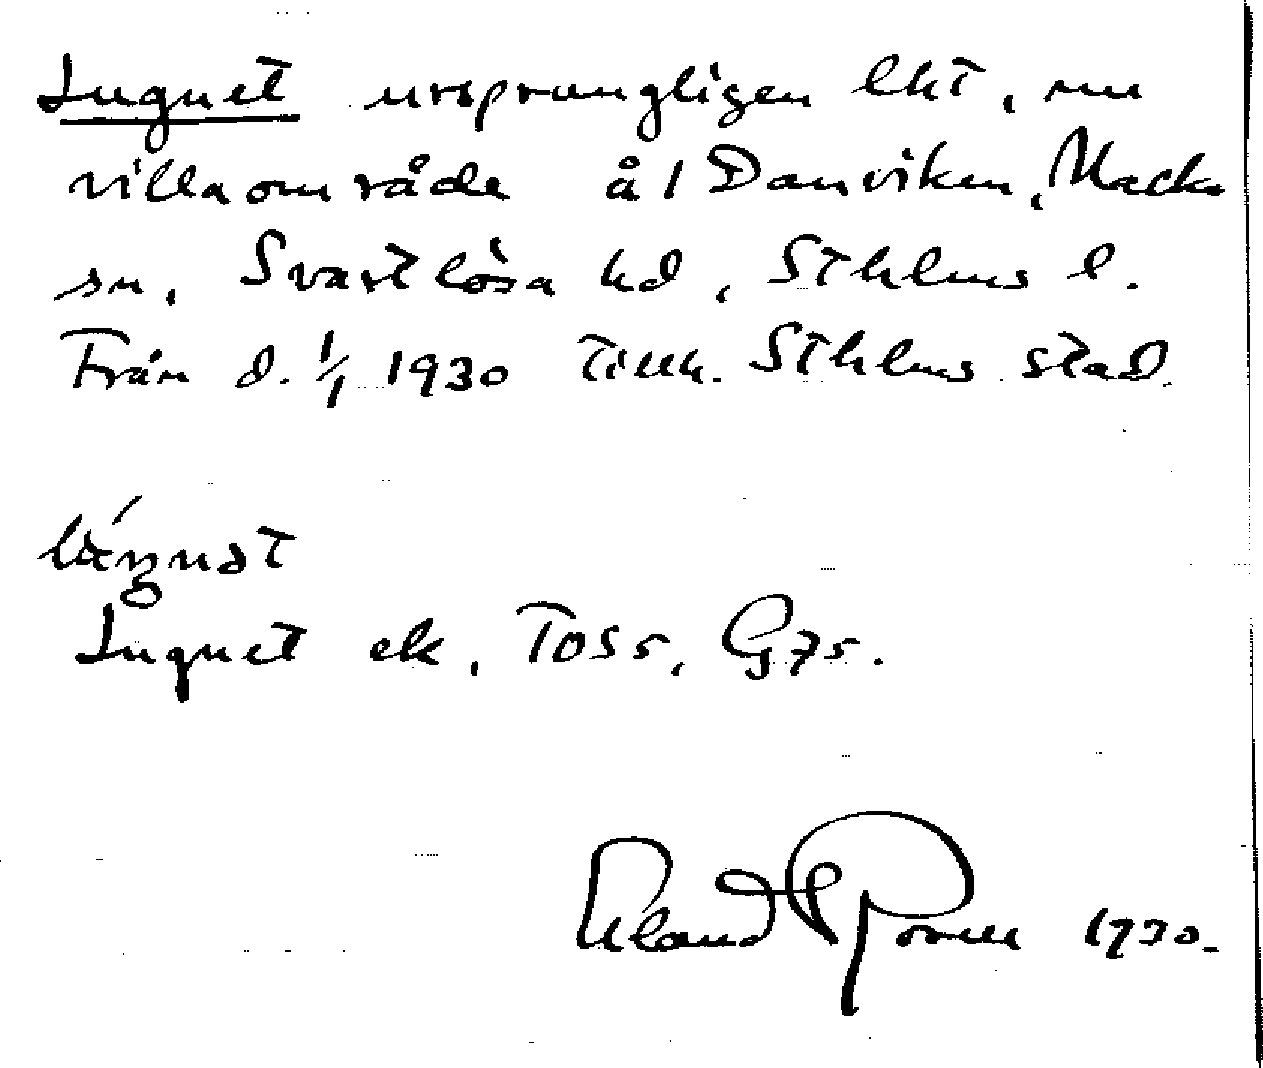 Lugnet ursprungligen lht, nu
villaområde å 1 Danviken, Nacka
sn, Svartlösa hd, Sthlms l.
Från d. 1/1 1930 Sthlms stad.
Lugnet ek, G75.
1930.